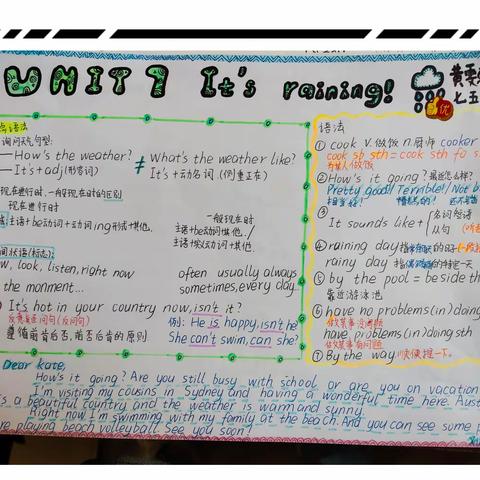 UNIT7 It's raining!
七五
优
语法
询问天气句型:
—How's the weather? ≠ What's the weather like?
—It's+adj(形容词) It's+动名词.(侧重正在)
现在进行时.一般现在时的区别
现在进行时
一般现在时
主语+be动词+动词ing形式+其他.
主语+be动词+其他./
主语+实义动词+其他.
look, listen, right now
often usually always
the monment...
sometimes, every day
It's hot in your country now, isn't it?
反意疑问句(反问句)
例: He is happy, isn't he?
遵循前肯后否,前否后肯的原则
She can't swim, can she?
语法
① cook v.做饭 n.厨师 cooker
cook sb sth = cook sth fo
做饭
② How's it going?
Pretty good! Terrible! Not b
③ It sounds like+
名词短语
从句
④ raining day
rainy day 指
⑤ by the pool = beside th
靠近游泳池
⑥ have no problems(in)doing
做某事没问题
have problems(in)doing sth
做某事有问题
⑦ By the way 顺便提一下.
Dear kate,
How's it going? Are you still busy with school or are you on vacation
I'm visiting my cousins in Sydney and having a wonderful time here. Aust
is a beautiful country and the weather is warm and sunny.
Right now I'm swimming with my family at the beach. And you can see some p
re playing beach volleyball. See you soon!